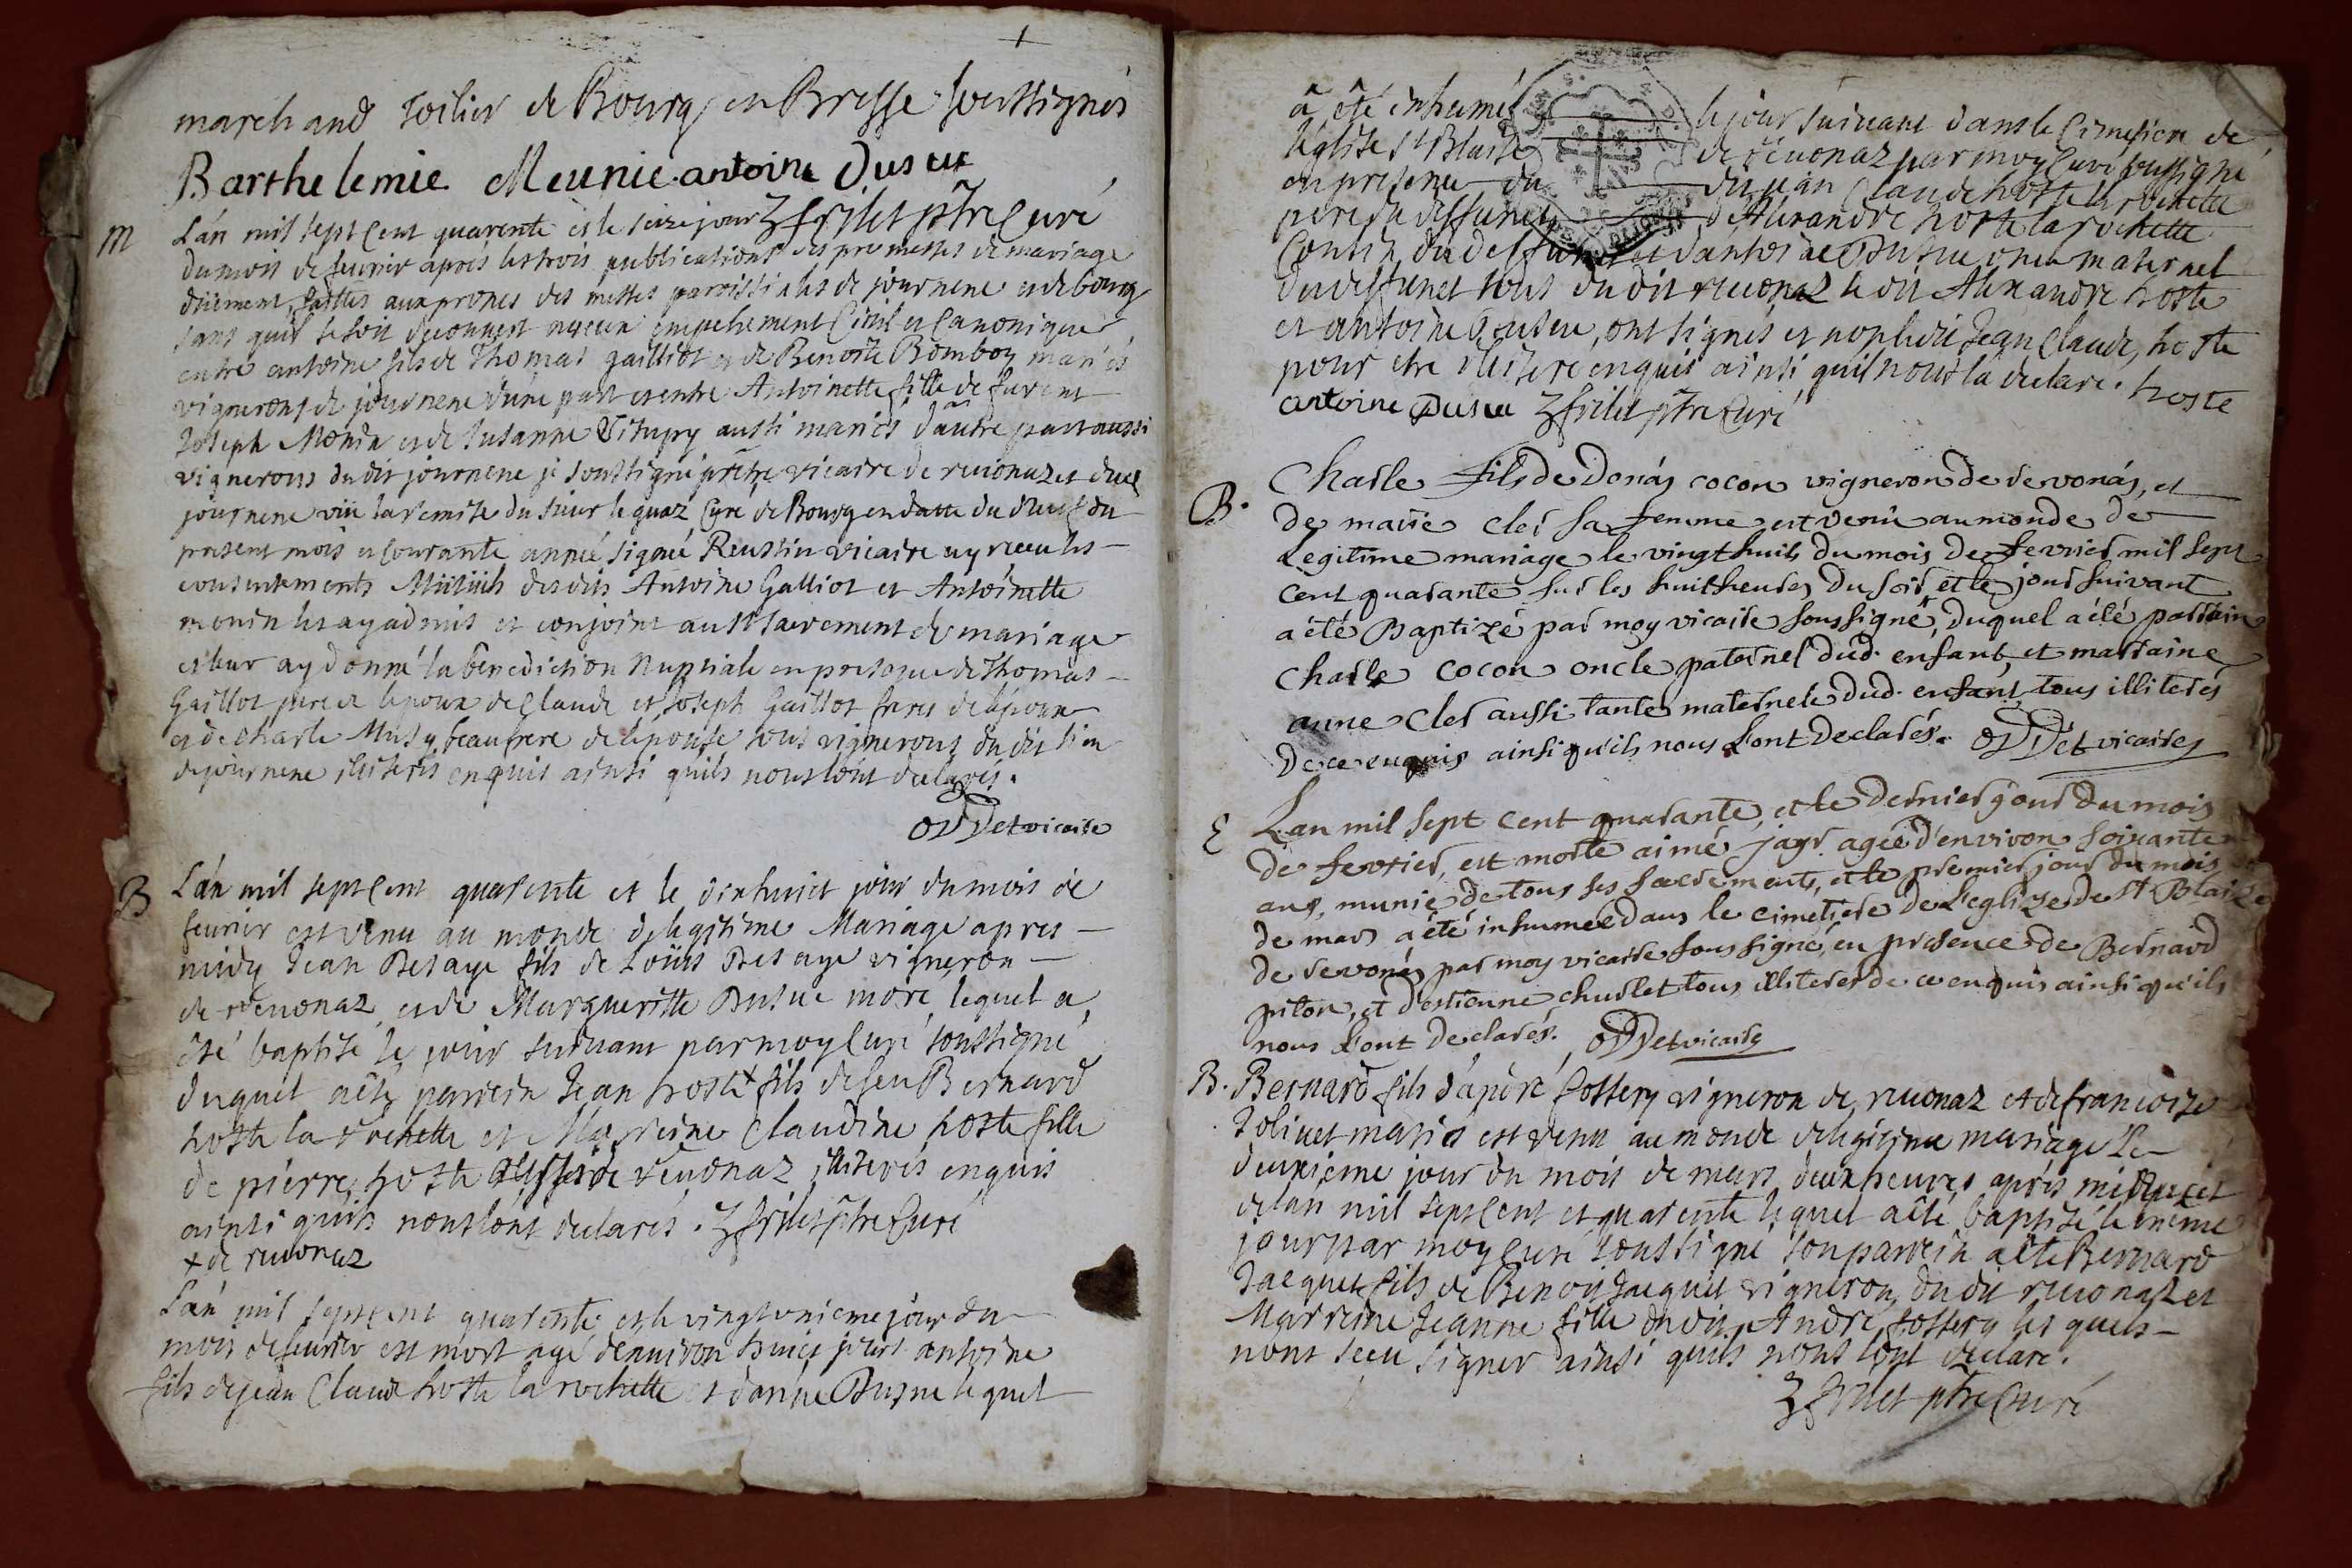 marchand toilier de Bourg en Bresse soussignés
Barthelemie Meunie antoine Dusue
frilet ptre Curé
m
Lán mil sept Cent quarente et le seize jour
du mois de feurier apres les trois publications des promesses de mariage
düement faittes aux prones des messes paroissiales de journene et de bourg
sans quil se soit decouuert aucun empechement Ciuil et Canonique
entre antoine fils de Thomas gailliot et de Benoite Bomboy mariés
vignerons de journene d'une part et entre Antoinette fille de furent
Joseph Monin et de Susanne aussi mariés d'autre part aussi
vignerons du dit journene je soussigné prêtre vicaire de reuonaz et dud
journene vüe la remise du sieur leguaz Curé de Bourg en datte du du
present mois et courante année signée Reustin vicaire ay receu les
consentements Mütüels desdits Antoine Galliot et Antoinette
monin les ay admis et conjoint au St sacrement de mariage
et leur ay donné la benediction Nuptiale en presence de Thomas
Gaillot pere de lepoux de Claude et Joseph Gaillot freres de lépoux
et de charle Musy beaufrere de lépouse tous vignerons du dit lieu
de journene illiterés enquis ainsi quils nous lont declarés.
vicaire
B
Lán mil sept Cent quarente et le dixhuict jour du mois de
feurier est venu au monde de legitime Mariage apres
midy Jean Besaye fils de Loüis Besaye vigneron
de reuonaz et de Marguerite Dusue more, lequel a
été baptisé le jour suiuant par moy Curé soussigné
duquel a été parrein Jean hoste + fils de feu Bernard
hoste la rochette et Marreine Claudine hoste fille
de pierre hoste de reuonaz illiterés enquis
ainsi quils nous lont declarés. frilet ptre Curé
+ de reuonaz
Lán mil sept Cent quarente et le vingt unieme jour du
mois de feurier est mort agé denuiron huict jours antoine
fils de jean Claude hoste la rochette et danne Dusue lequel
â été inhumé le jour suiuant dans le Cimetiere de
léglise St Blaise de réuonaz par moy Curé soussigné
en presence du dit jean Claude hoste la rochette
pere du deffunct d'Alexandre hoste la rochette
Cousin du deffunct et d'antoine Dusue oncle maternel
du deffunct tous du dit reuonaz le dit Alexandre hoste
et antoine Dusue, ont signés et non le dit Jean Claude hoste
pour etre illiteré enquis ainsi quil nous la declaré. hoste
antoine Dusue frilet ptre Curé
B.
Charle fils de Donás cocon vigneron de revonás, et
de marie cler sa femme est venu au monde de
Legitime mariage le vingt huit du mois de fevrier mil sept
cent quarante sur les huit heures du soir et le jour suivant
a été Baptizé par moy vicaire soussigné, duquel a été parrain
charle cocon oncle paternel dud. enfant, et marraine
anne cler aussi tante maternele dud. enfant, tous illiterés
de ce enquis ainsi qu'ils nous l'ont declarés. vicaire
E
Lan mil sept cent quarante, et le dernier jour du mois
de fevrier, est morte aimé jayr agée d'environ soixante
ans, munie de tous ses sacrements, et le premier jour du mois
de mars a été inhumée dans le cimetiere de L'eglize de St Blaize
de revonás par moy vicaire soussigné, en presence de Bernard
piton, et d'estienne chuslet tous illiterés de ce enquis ainsi qu'ils
nous l'ont declarés. vicaire
B.
Bernard fils d'andré fossery vigneron de reuonaz et de francoise
Joliuet mariés est venu au monde de legitime mariage Le
deuxieme jour du mois de mars deux heures aprés midy
de lan mil sept Cent et quarente lequel a été baptisé le meme
jour par moy Curé soussigné son parrein a été Bernard
Jacquet fils de Benoit Jacquet vigneron du dit reuonaz et
Marreine Jeanne fille du dit André fossery les quels
nont sceu signer ainsi quils nous lont declaré.
frilet ptre Curé